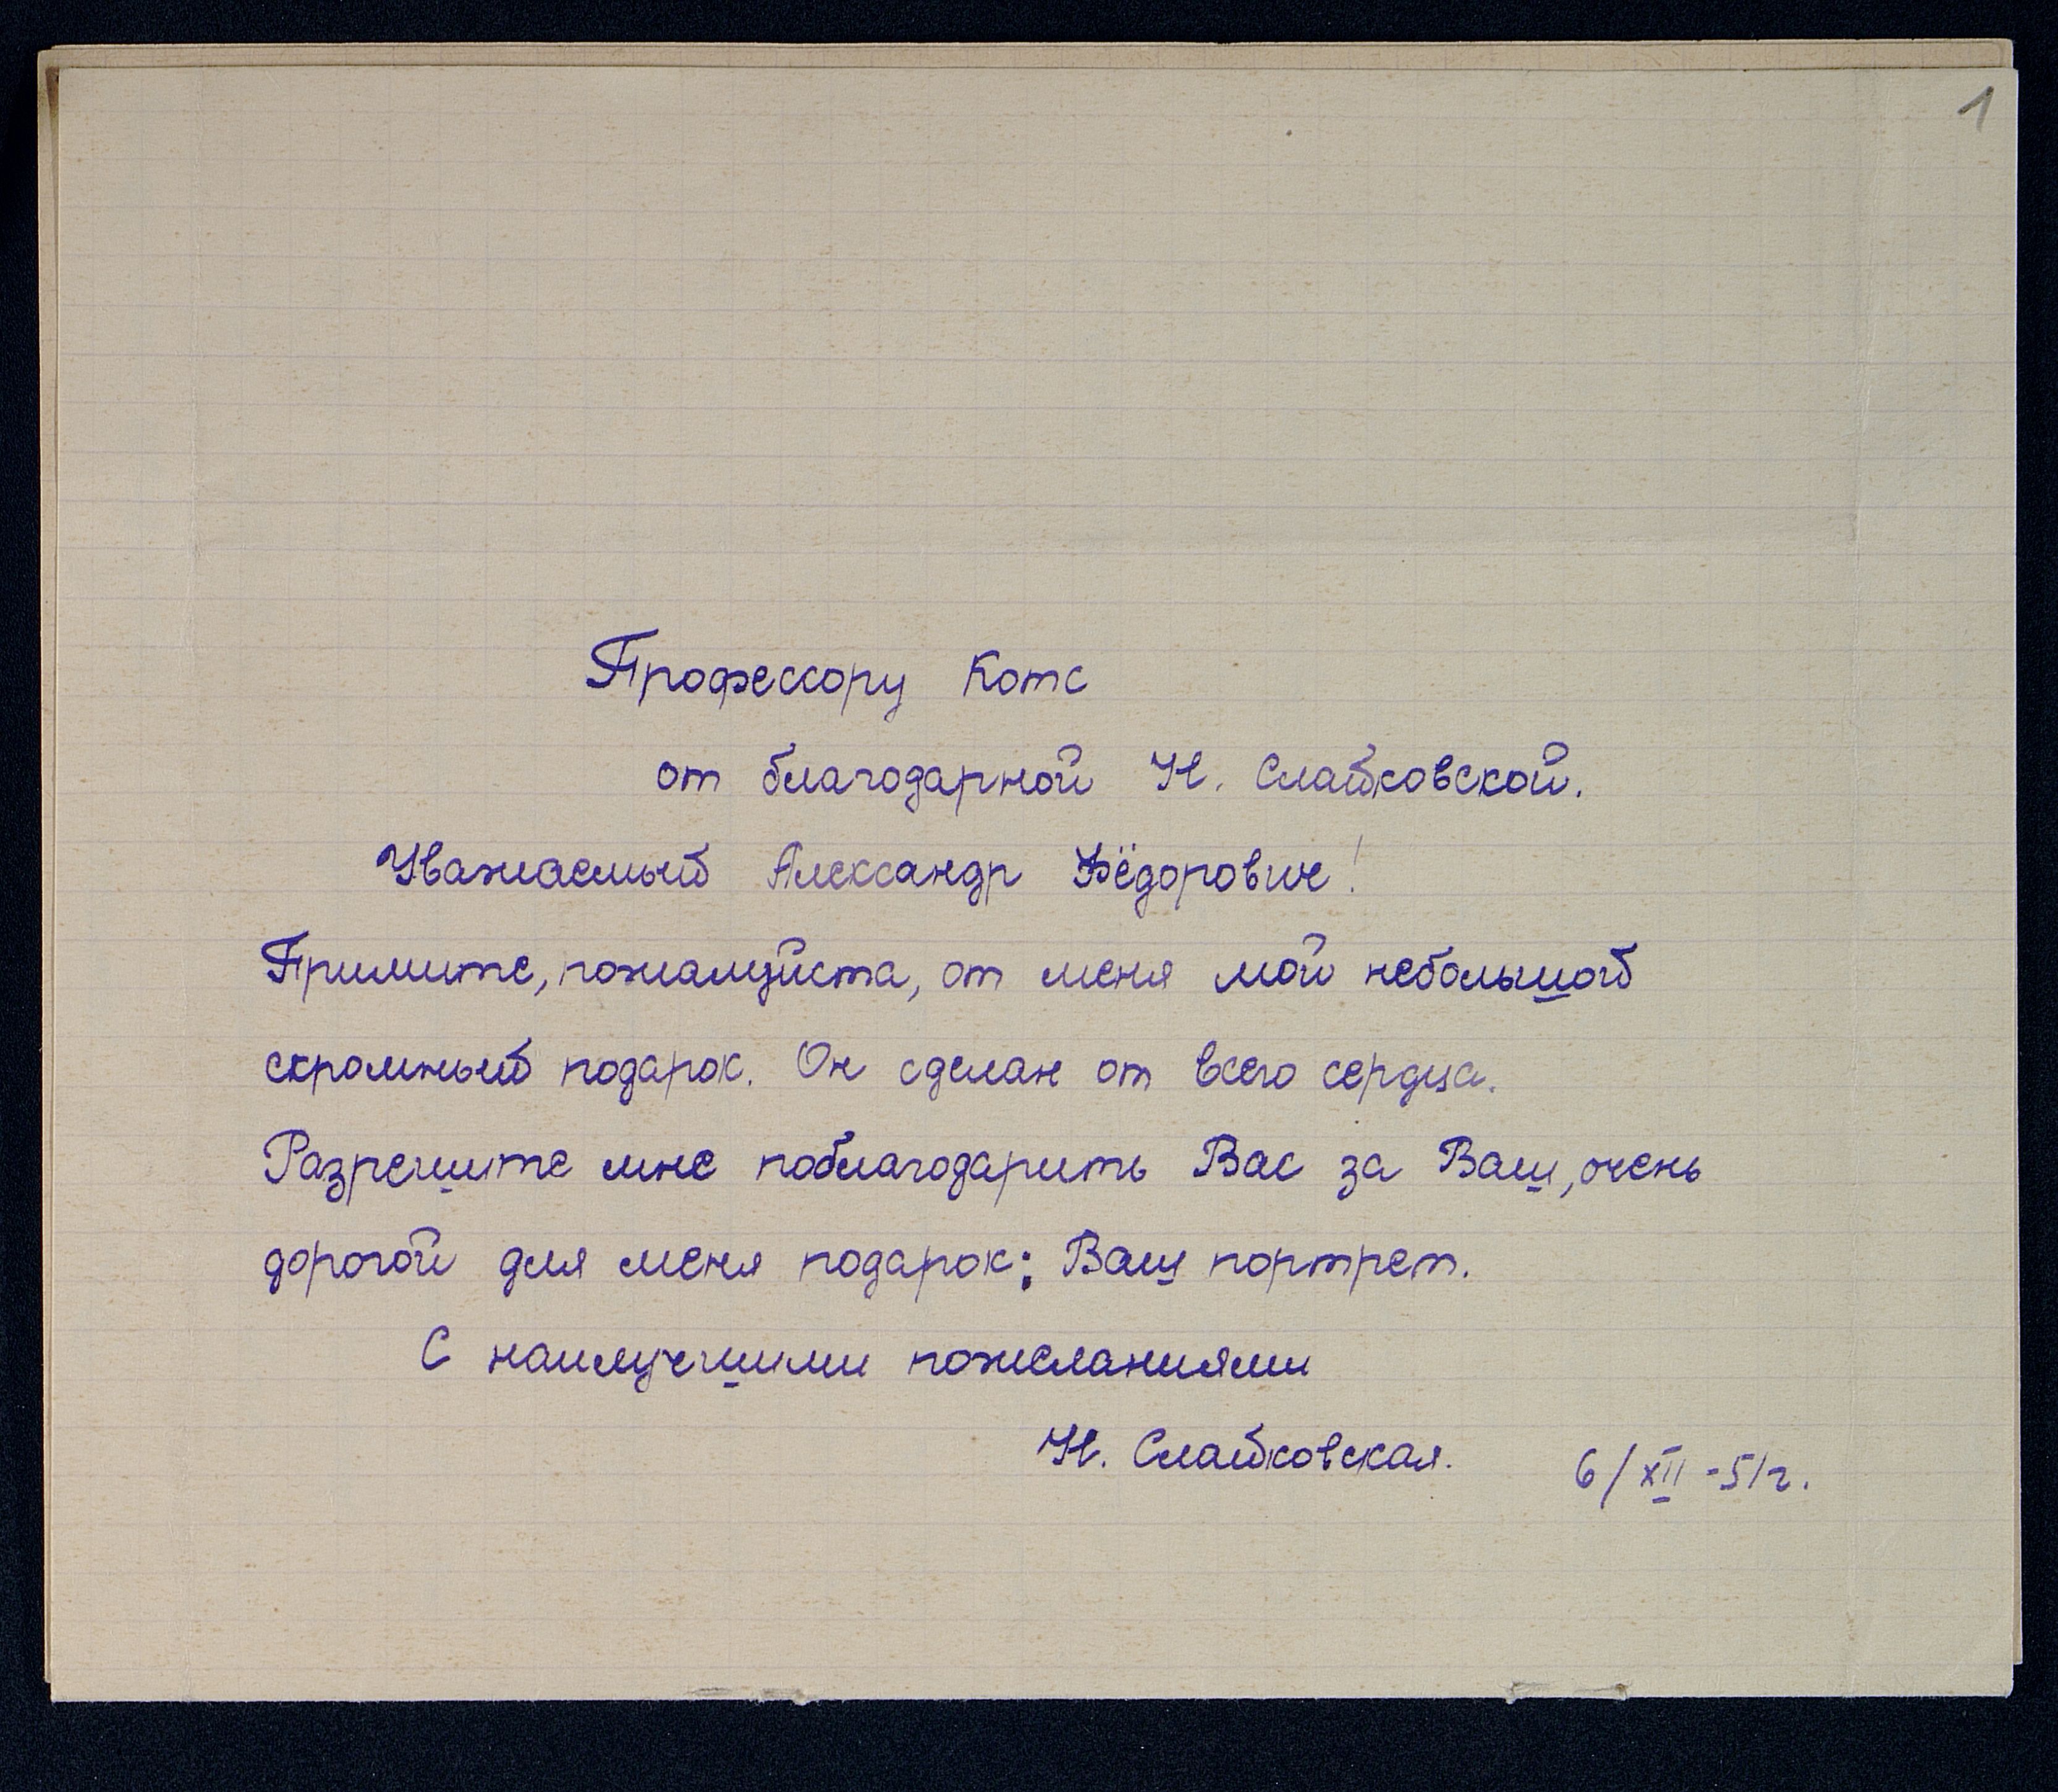 1
Профессору Котс
от благодарной Н. Слайковской.
Уважаемый Александр Фёдорович!
Примите, пожалуйста, от меня мой небольшой
скромный подарок. Он сделан от всего сердца.
Разрешите мне поблагодарить Вас за Ваш, очень
дорогой для меня подарок: Ваш портрет.
С наилучшими пожеланиями
Н. Слайковская. 6/XII-51г.